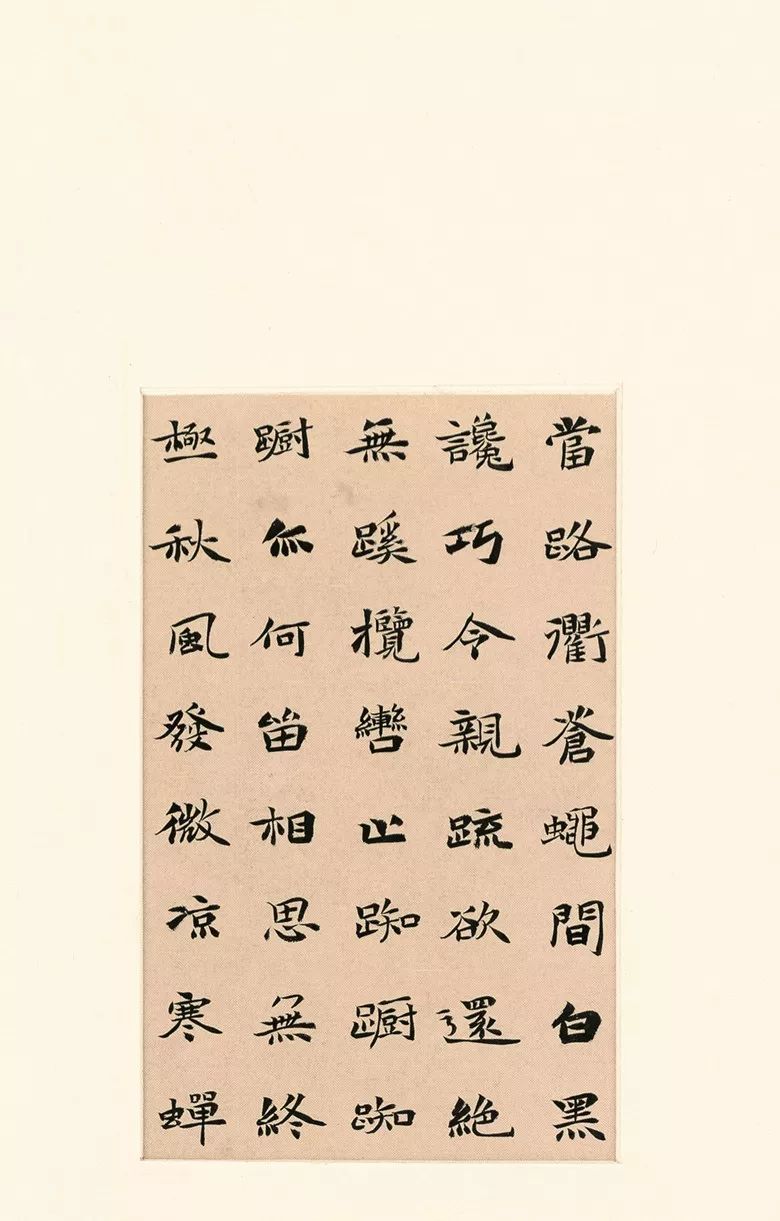 當路衢蒼蠅間白黑
讒巧令親疏欲還絕
無蹊攬轡止踟躕踟
躕亦何留相思無終
極秋風發微凉寒蟬